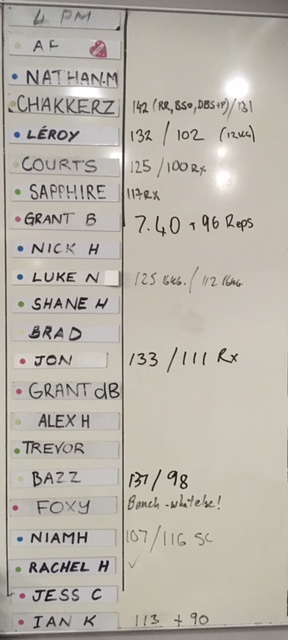 4 PM
AF
NATHAN.M
CHAKKERZ 142 (RR, BSO, DBS+P)/131
LÉROY 132 / 102 (12KG)
COURTS 125 / 100 Rx
SAPPHIRE 117 RX
GRANT B 7.40 + 96 Reps
NICK H
LUKE N 125 16KG. / 112 16KG
SHANE H
BRAD
JON 133 / 111 Rx
GRANT dB
ALEX H
TREVOR
BAZZ 137 / 98
FOXY Bench - what else!
NIAMH 107 / 116 SC
RACHEL H ✓
JESS C
IAN K 113 + 90